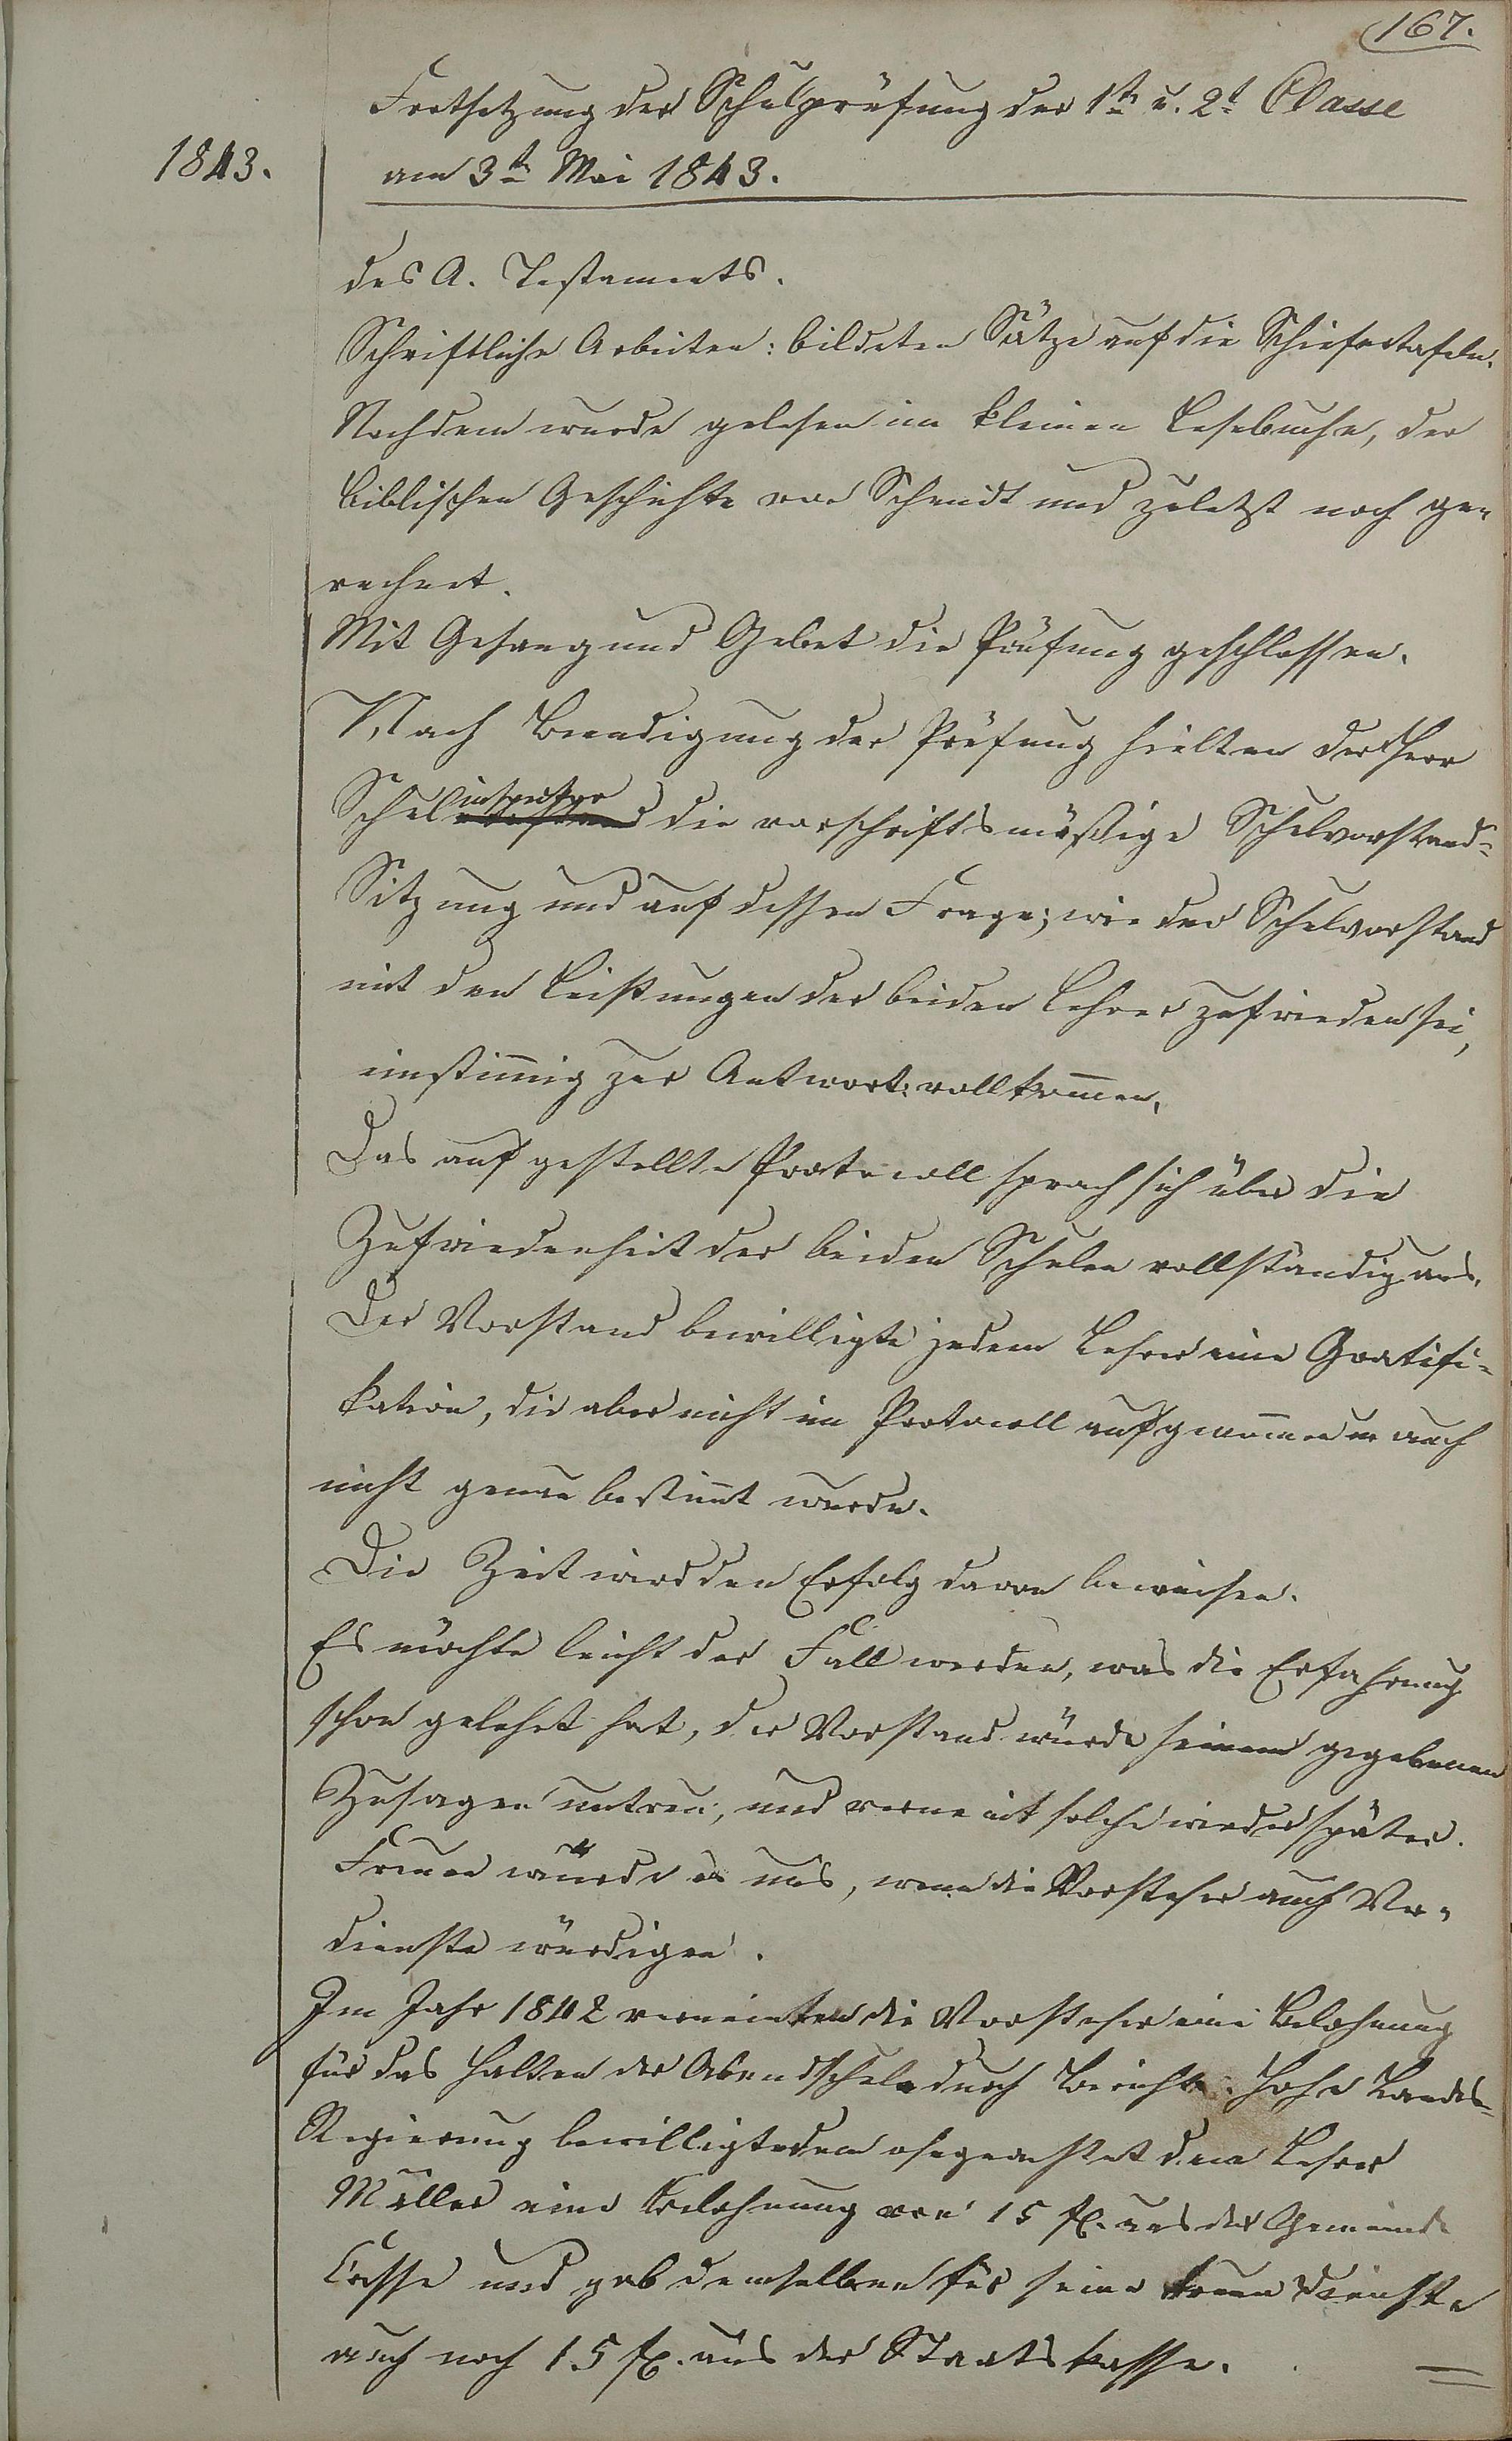 167.
Fortsetzung der Schulprüfung der 1t u. 2t Classe
1843.
am 3t Mai 1843.
des A. Testaments.
Schriftliche Arbeiten: bildeten Sätze auf die Schiefertafeln.
Nachdem wurde gelesen im kleinen Lesebuche, der
biblischen Geschichte von Schmidt und zuletzt noch ge-
rechnet.
Mit Gesang und Gebet die Prüfung geschlossen.
Nach Beendigung der Prüfung hielten der Herr
Schulinspector die vorschriftsmäßige Schulvorstand-
Sitzung und auf dessen Frage; wie der Schulvorstand
mit den Leistungen der beiden Lehrer zufrieden sei,
einstimmig zur Antwort: vollkommen.
Das aufgestellte Protocoll sprach sich über die
Zufriedenheit der beiden Schulen vollständig aus.
Der Vorstand bewilligte jedem Lehrer eine Gratifi-
kation, die aber nicht im Protocoll aufgenommen u auch
nicht genau bestimmt wurde.
Die Zeit wird den Erfolg davon beweisen.
Es möchte leicht der Fall werden, was die Erfahrung
schon gelehrt hat, der Vorstand würde seinem gegebenen
Zusagen untreu, und verneint solche wieder später.
Freuen würde es uns, wenn die Vorsteher auch Ver-
dienste würdigen.
Im Jahr 1842 verneinten die Vorsteher eine Belohnung
für das Halten der Abendschule durch Bericht. Hohe Landes-
Regierung bewilligte dem ohngeachtet dem Lehrer
Müller eine Belohnung von 15 fl. aus der Gemeinde
Casse und gab demselben für seine treuen Dienste
auch noch 15 fl. aus der Staatskasse.